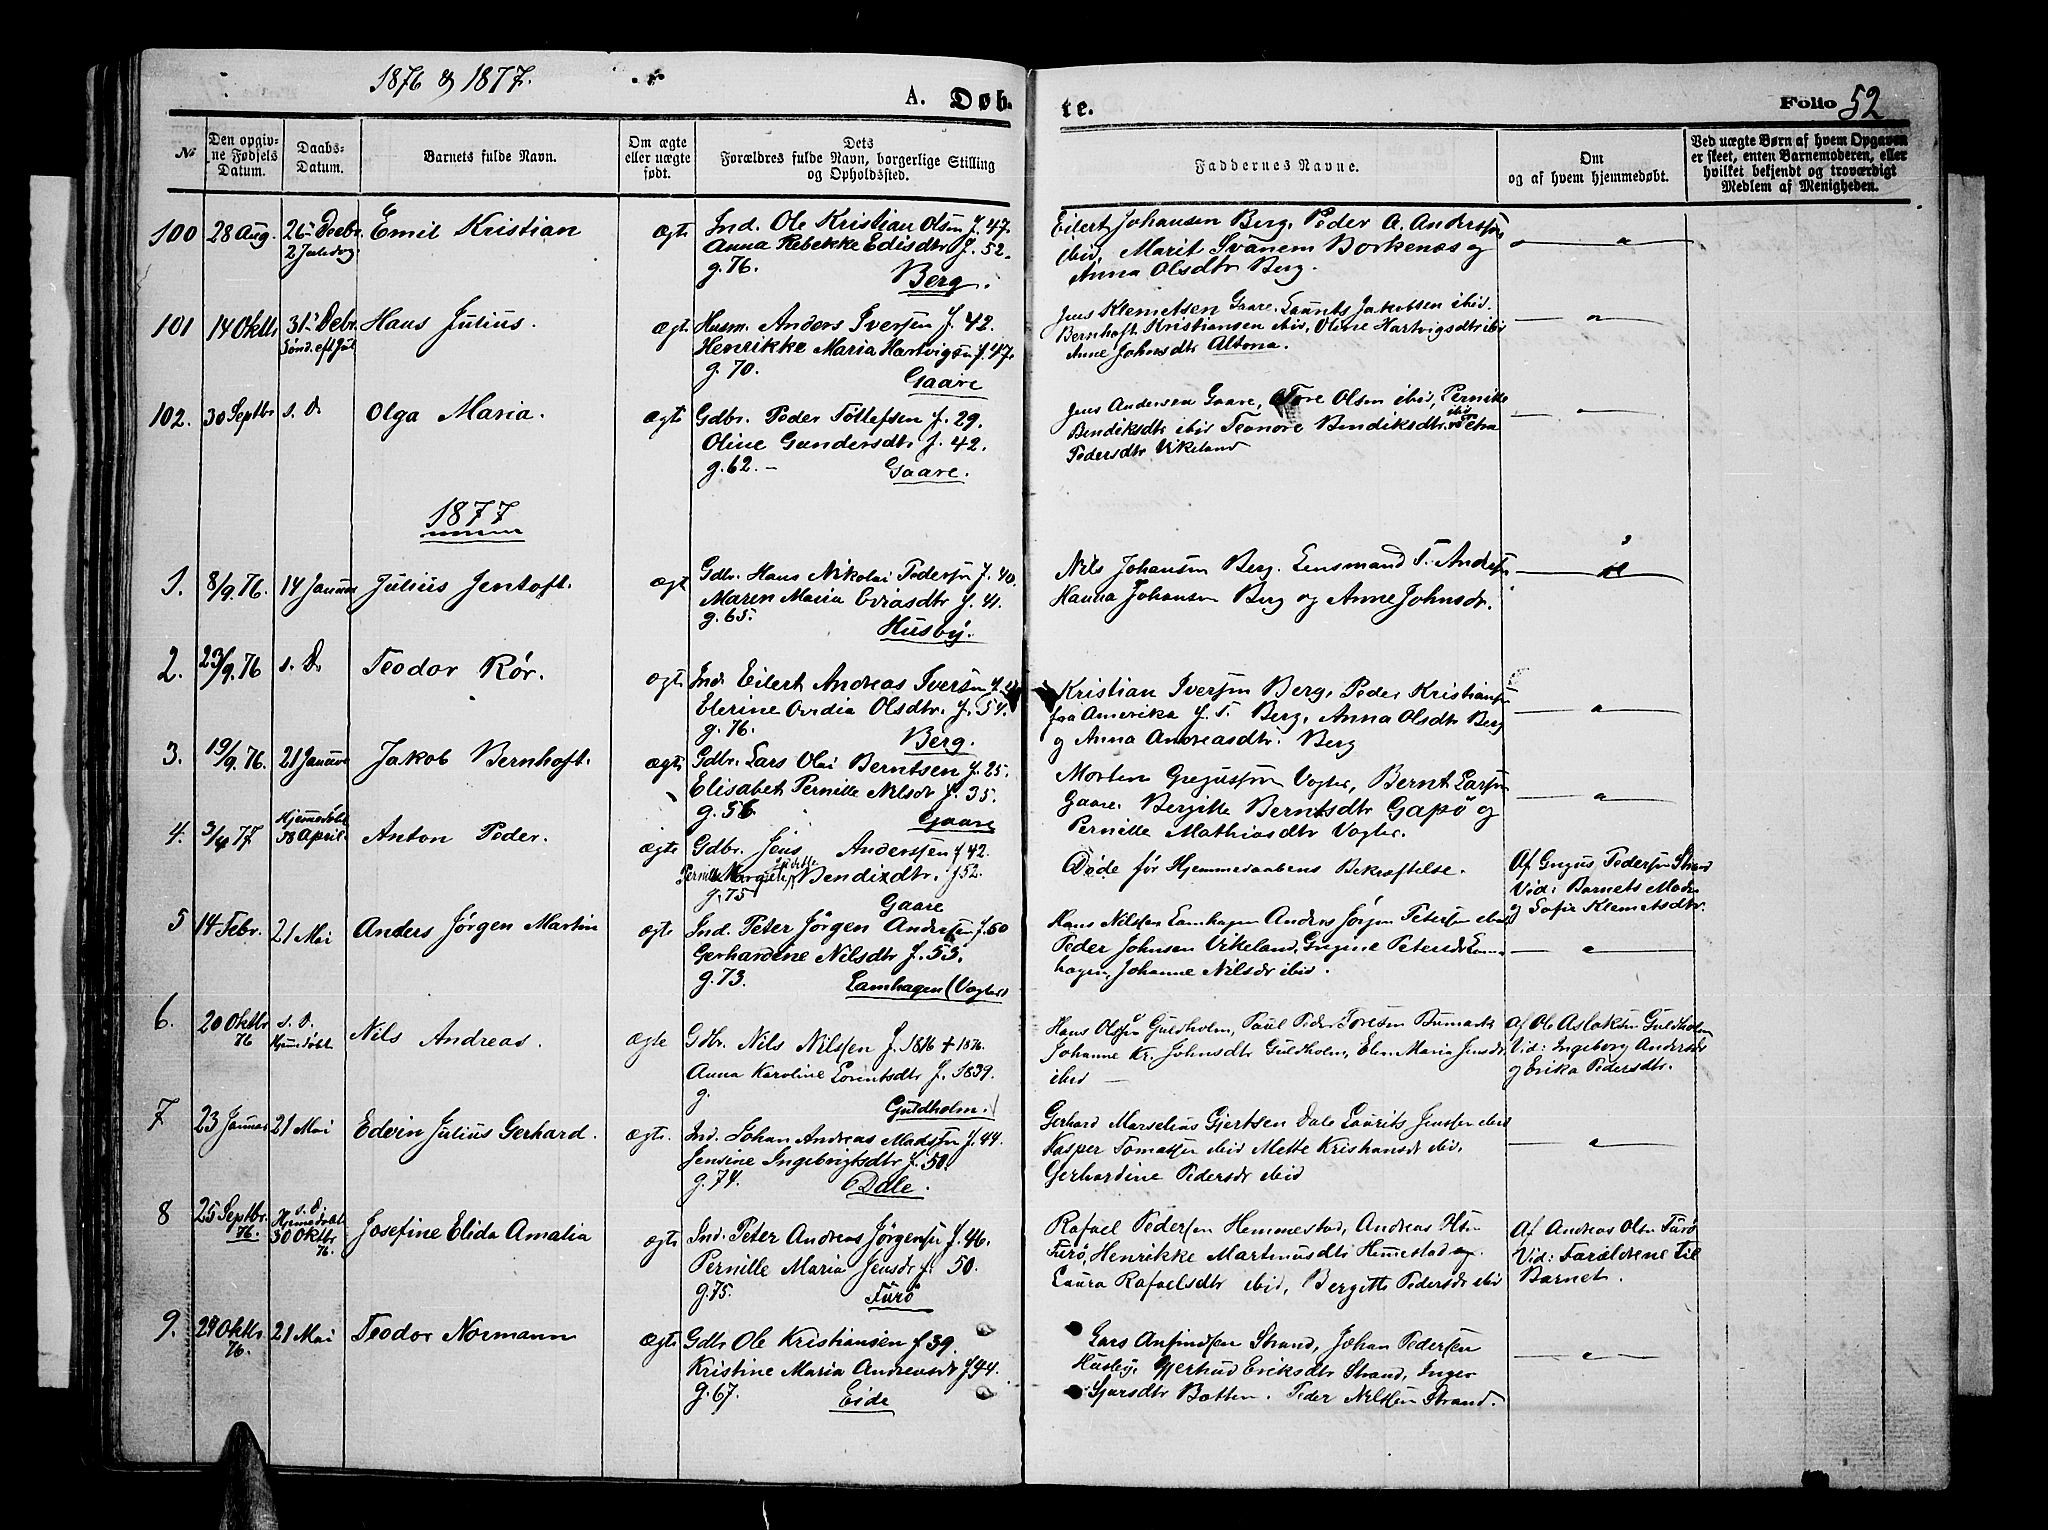 1876 & 1877.
A. Døb-
te.
Folio 52
№
Den opgiv-
ne Fødsels
Datum.
Daabs-
Datum.
Barnets fulde Navn.
Om ægte
eller uægte
født.
Dets
Forældres fulde Navn, borgerlige Stilling
og Opholdssted.
Faddernes Navne.
Om
og af hvem hjemmedøbt.
Ved uægte Børn af hvem Opgaven
er skeet, enten Barnemoderen, eller
hvilket bekjendt og troværdigt
Medlem af Menigheden.
100 28 Aug. 26 Decbr. 2 Juledag Emil Kristian ægte
Ind. Ole Kristian Olsen f. 47.
Anna Rebekke Edisdtr f. 52.
g. 76. Berg.
Eilert Johansen Berg, Peder A. Anderssen
ibid, Marit Svanem Borkenæs og
Anna Olsdtr Berg.
101 14 Oktbr 31 Debr. Sønd. eft Jul Hans Julius. ægte
Husm. Anders Iversen f. 42.
Henrikke Maria Hartvigsn f. 47.
g. 70. Gaare
Jens Klemetsen Gaare, Jakobsen ibid.
Bernhoft Kristiansen ibid, Oline Hartvigsdtr ibid
Anne Johnsdtr Altona.
102. 30 Septbr s. D. Olga Maria. ægte
Gdbr. Peder Tollefsen f. 29.
Oline Gundersdtr f. 42.
g. 62. – Gaare.
Jens Andersen Gaare, Tore Olsen ibid, Pernille
Bendiksdtr ibid Teonore Bendiksdtr ibid
Pedersdtr Vikeland
1877
1. 8/9. 76. 14 Januar Julius Jentoft. ægte
Gdbr. Hans Nikolai Pedersen f. 40.
Maren Maria Eviasdtr f. 41.
g. 65. Husby.
Nils Johansen Berg. Lensmand T. Andersen
Hanna Johansen Berg og Anne Johnsdtr.
2. 23/9. 76 s. D. Teodor Rör. ægte
Ind. Eilert Andreas Iversen
Elerine Ovidia Olsdtr. f. 54.
g. 76. Berg.
Kristian Iversen Berg, Peder Kristiansen
fra Amerika f. T. Berg, Anna Olsdtr Berg
og Anna Andreasdtr. Berg
3. 19/9. 76. 21 Januar Jakob Bernhoft. ægte
Gdbr. Lars Olai Berntsen f. 25.
Elisabet Pernille Nilsdr f. 35.
g. 56. Gaare
Morten Gregussen Vogter, Bernt Larsen
Gaare. Bergitte Berntsdtr Gapö og
Pernille Mathiasdtr Vogter.
4. 3/4 77. Hjemmedöbt 8 April. Anton Peder. ægte
Gdbr. Jens Anderssen f 42.
Pernille Bendixdtr. f 52.
g. 75 Gaare
Døde før Hjemmedaabens Bekræftelse.
Af Gregus Pedersen Strand
Vid: Barnets Moder
og Sofie Klemetsdtr.
5 14 Febr. 21 Mai Anders Jørgen Martin ægte
Ind. Peter Jørgen Andersen f. 50
Gerhardine Nilsdtr f. 53.
g. 73. Lamhagen (Vogter)
Hans Nilssen Lamhagen Anders Jørgen Petersen ibid
Peder Johnsen Vikeland, Gregine Petersdr Lam-
hagen, Johanne Nilsdr ibid.
6. 20 Oktbr 76 s. D. Hjemmedöbt Nils Andreas. ægte
Gdbr. Nils Nilssen f. 1816 + 1876.
Anna Karoline Lorentsdtr f. 1839.
g. Guldholm.
Hans Olssen Guldholm, Paul Peder Toresen
Johanne Kr. Johnsdtr Guldholm, Elen Maria Jensdr
ibid –
Af Ole Aslaksen Guldholm
Vid: Ingeborg Andersdr
og Erika Pedersdtr.
7 23 Januar 21 Mai Edvin Julius Gerhard. ægte
Ind. Johan Andreas Madssen f. 44
Jensine Ingebrigtsdtr f. 50.
g. 74. Dale.
Gerhard Marselius Gjertsen Dale Laurits Jenssen ibid
Kasper Tomassen ibid Mette Kristiansdr ibid,
Gerhardine Pedersdr ibid
8 25 Septbr. 76. s. D. Hjemmedöbt 30 Oktbr 76. Josefine Elida Amalia ægte
Ind. Peter Andreas Jørgensen f. 46.
Pernille Maria Jensdr f. 50.
g. 75. Furö
Rafael Pedersen Hemmestad, Andreas
Furö, Henrikke Martinusdtr Hemestad og
Laura Rafaelsdtr ibid, Bergitte Pedersdr ibid
Af Andreas Olsen Furö
Vid: Forældrene til
Barnet.
9. 29 Oktbr 76. 21 Mai Teodor Normann ægte
Gdbr Ole Kristiansen f 39.
Kristine Maria Andreasdr f 44.
g. 67. Eide
Lars Anfindsen Strand, Johan Pedersen
Husby, Gjertrud Eriksdtr Strand, Inger
Sjursdtr Botten. Peder Nilssen Strand.